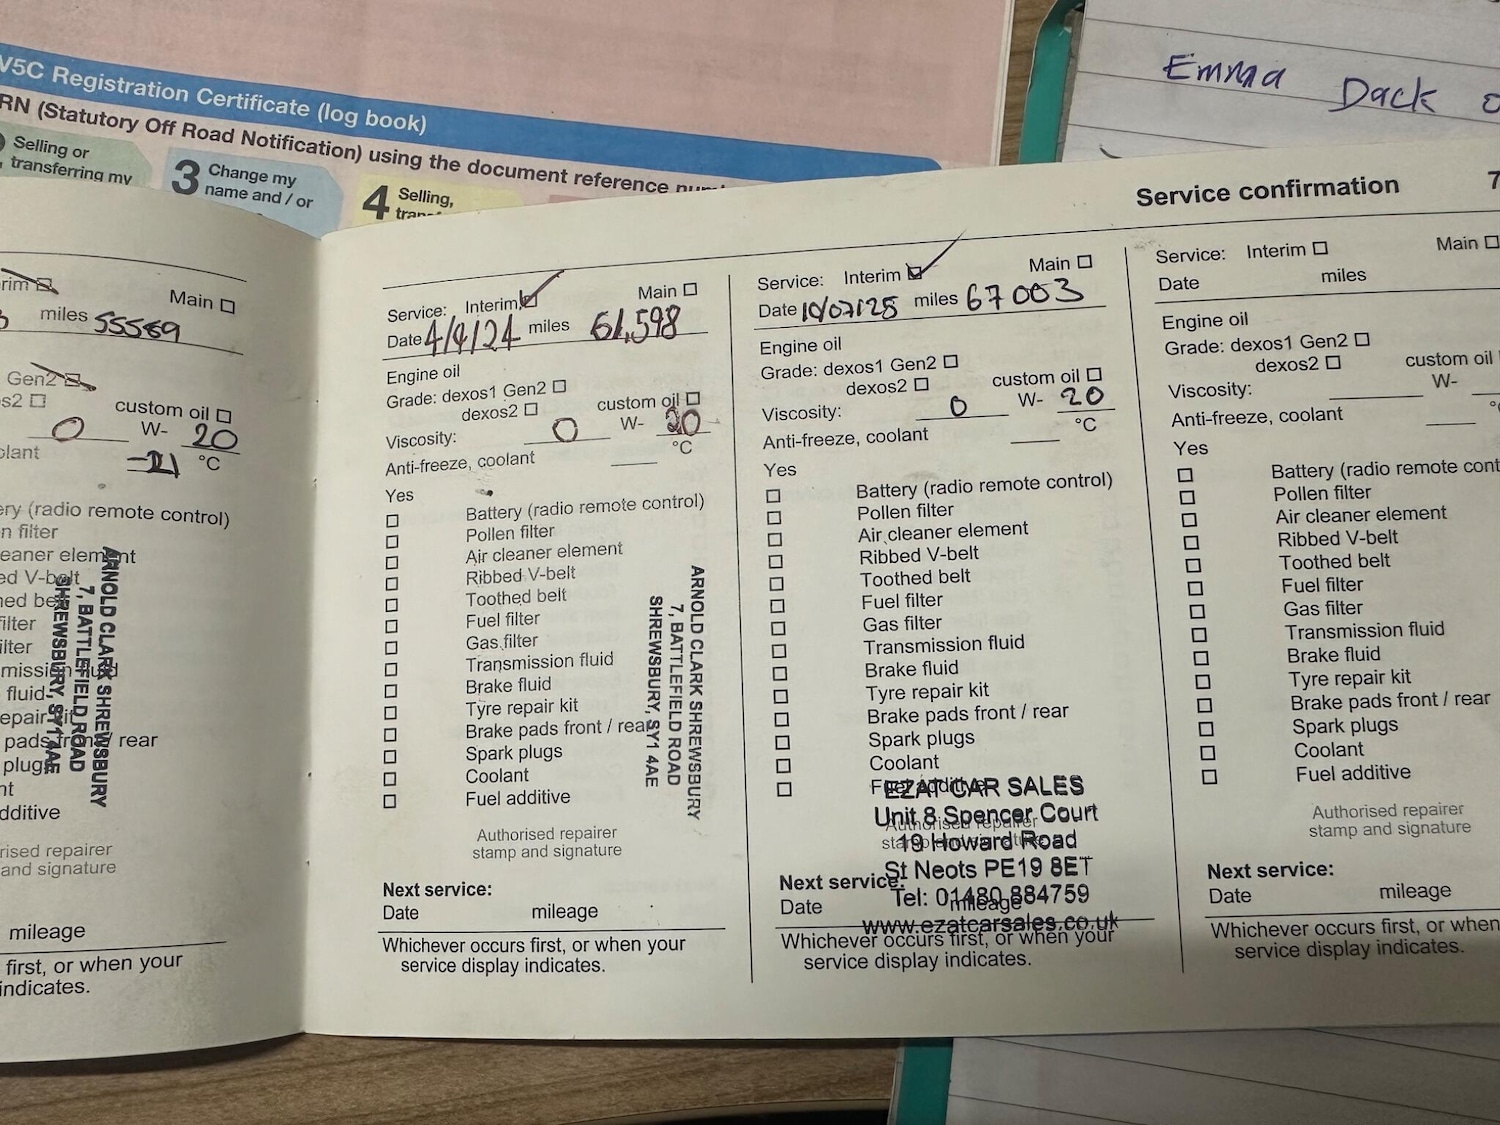 V5C Registration Certificate (log book)
RN (Statutory Off Road Notification) using the document reference
Selling or
transferring my
3 Change my
name and / or
4 Selling,
Emma Dack
Service confirmation 7
rim
Main
miles 55569
Gen2
s2
custom oil
0 W- 20
olant -21 °C
ery (radio remote control)
n filter
eaner element
ed V-belt
hed belt
filter
ilter
mission fluid
fluid
epair kit
pads front / rear
plugs
nt
dditive
ARNOLD CLARK SHREWSBURY
7, BATTLEFIELD ROAD
SHREWSBURY, SY1 4AE
rised repairer
and signature
mileage
first, or when your
indicates.
Service: Interim Main
Date 4/4/24 miles 61,598
Engine oil
Grade: dexos1 Gen2
dexos2 custom oil
Viscosity: 0 W- 20
Anti-freeze, coolant °C
Yes
Battery (radio remote control)
Pollen filter
Air cleaner element
Ribbed V-belt
Toothed belt
Fuel filter
Gas filter
Transmission fluid
Brake fluid
Tyre repair kit
Brake pads front / rear
Spark plugs
Coolant
Fuel additive
ARNOLD CLARK SHREWSBURY
7, BATTLEFIELD ROAD
SHREWSBURY, SY1 4AE
Authorised repairer
stamp and signature
Next service:
Date mileage
Whichever occurs first, or when your
service display indicates.
Service: Interim Main
Date 10/07/25 miles 67003
Engine oil
Grade: dexos1 Gen2
dexos2 custom oil
Viscosity: 0 W- 20
Anti-freeze, coolant °C
Yes
Battery (radio remote control)
Pollen filter
Air cleaner element
Ribbed V-belt
Toothed belt
Fuel filter
Gas filter
Transmission fluid
Brake fluid
Tyre repair kit
Brake pads front / rear
Spark plugs
Coolant
Fuel additive
EZAT CAR SALES
Unit 8 Spencer Court
19 Howard Road
St Neots PE19 8ET
Tel: 01480 884759
www.ezatcarsales.co.uk
Authorised repairer
stamp and signature
Next service:
Date mileage
Whichever occurs first, or when your
service display indicates.
Service: Interim Main
Date miles
Engine oil
Grade: dexos1 Gen2
dexos2 custom oil
Viscosity: W-
Anti-freeze, coolant
Yes
Battery (radio remote cont
Pollen filter
Air cleaner element
Ribbed V-belt
Toothed belt
Fuel filter
Gas filter
Transmission fluid
Brake fluid
Tyre repair kit
Brake pads front / rear
Spark plugs
Coolant
Fuel additive
Authorised repairer
stamp and signature
Next service:
Date mileage
Whichever occurs first, or when
service display indicates.